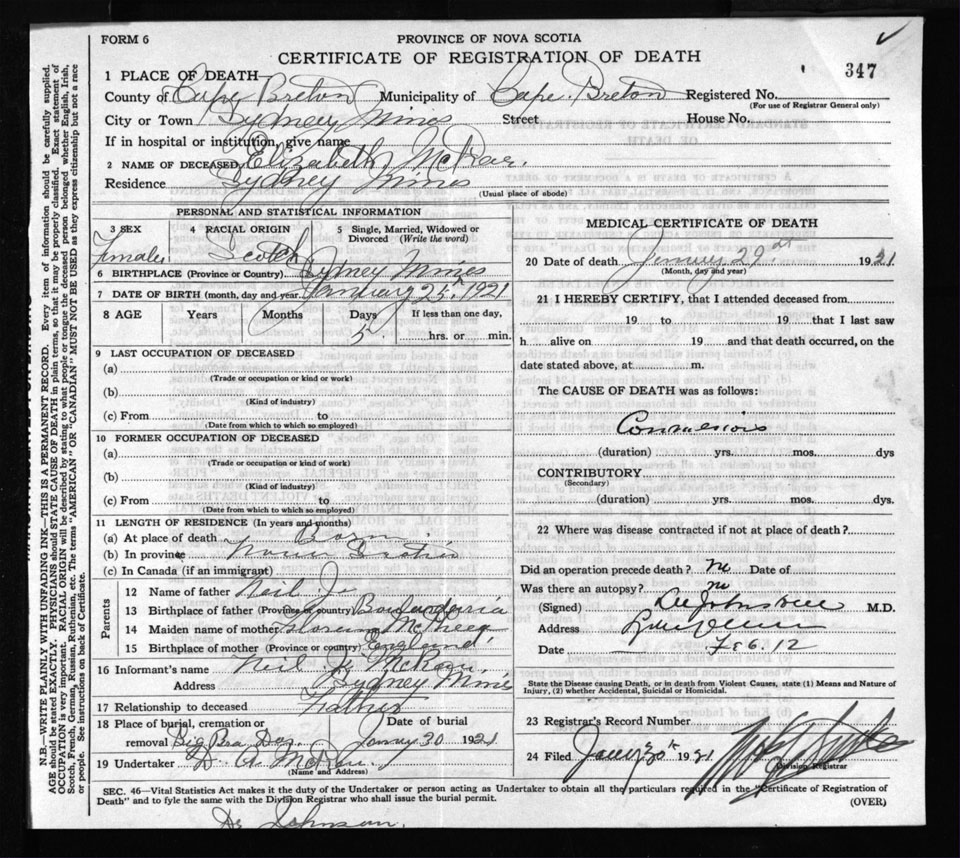 FORM 6
PROVINCE OF NOVA SCOTIA
CERTIFICATE OF REGISTRATION OF DEATH
347
1 PLACE OF DEATH—
County of Cape Breton Municipality of Cape Breton Registered No.
(For use of Registrar General only)
City or Town Sydney Mines Street House No.
If in hospital or institution, give name
2 NAME OF DECEASED Elizabeth McRae.
Residence Sydney Mines
(Usual place of abode)
PERSONAL AND STATISTICAL INFORMATION
3 SEX 4 RACIAL ORIGIN 5 Single, Married, Widowed or Divorced (Write the word)
Female Scotch
6 BIRTHPLACE (Province or Country) Sydney Mines
7 DATE OF BIRTH (month, day and year) January 25th 1921
8 AGE Years Months Days If less than one day,
5 hrs. or min.
9 LAST OCCUPATION OF DECEASED
(a)
(Trade or occupation or kind or work)
(b)
(Kind of industry)
(c) From to
(Date from which to which so employed)
10 FORMER OCCUPATION OF DECEASED
(a)
(Trade or occupation or kind or work)
(b)
(Kind of industry)
(c) From to
(Date from which to which so employed)
11 LENGTH OF RESIDENCE (In years and months)
(a) At place of death Born
(b) In province Nova Scotia
(c) In Canada (if an immigrant)
Parents
12 Name of father Neil J.
13 Birthplace of father (Province or country) Boularderie
14 Maiden name of mother Florence McPhee
15 Birthplace of mother (Province or country) England
16 Informant's name Neil J. McRae.
Address Sydney Mines
17 Relationship to deceased Father
18 Place of burial, cremation or removal Big Bras Dor Date of burial January 30 1921
19 Undertaker D. A. McRae.
(Name and Address)
MEDICAL CERTIFICATE OF DEATH
20 Date of death January 29 1921
(Month, day and year)
21 I HEREBY CERTIFY, that I attended deceased from
19 to 19 that I last saw
h alive on 19 and that death occurred, on the
date stated above, at m.
The CAUSE OF DEATH was as follows:
(duration) yrs. mos. dys
CONTRIBUTORY
(Secondary)
(duration) yrs. mos. dys.
22 Where was disease contracted if not at place of death?
Did an operation precede death? no Date of
Was there an autopsy? no
(Signed) M.D.
Address
Date Feb. 12
State the Disease causing Death, or in death from Violent Causes, state (1) Means and Nature of Injury, (2) whether Accidental, Suicidal or Homicidal.
23 Registrar's Record Number
24 Filed Jany 30th 1921
Division Registrar
SEC. 46—Vital Statistics Act makes it the duty of the Undertaker or person acting as Undertaker to obtain all the particulars required in the "Certificate of Registration of
Death" and to fyle the same with the Division Registrar who shall issue the burial permit.
(OVER)
Dr Johnson.
N.B.—WRITE PLAINLY WITH UNFADING INK—THIS IS A PERMANENT RECORD. Every item of information should be carefully supplied.
AGE should be stated EXACTLY. PHYSICIANS should STATE CAUSE OF DEATH in plain terms, so that it may be properly classified. Exact statement of
OCCUPATION is very important. RACIAL ORIGIN will be described by stating to what people or tongue the deceased person belonged whether English, Irish,
Scotch, French, German, Russian, Ruthenian, etc. The terms "AMERICAN" OR "CANADIAN" MUST NOT BE USED as they express citizenship but not a race
or people. See instructions on back of Certificate.